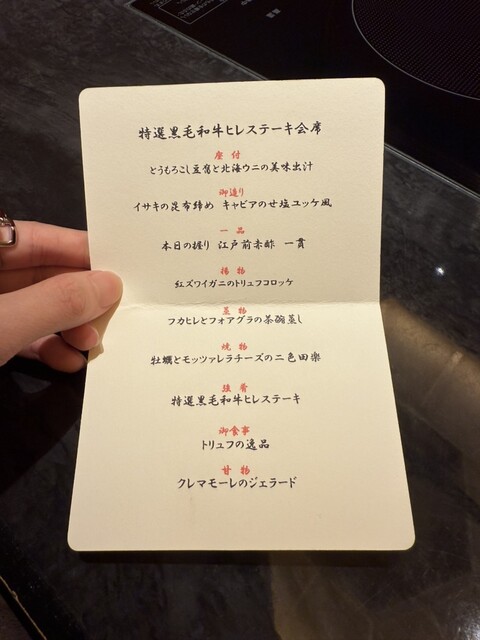 特選黒毛和牛ヒレステーキ会席
座付
とうもろこし豆腐と北海ウニの美味出汁
御造り
イサキの昆布締め キャビアのせ塩ユッケ風
一品
本日の握り 江戸前赤酢 一貫
揚物
紅ズワイガニのトリュフコロッケ
蒸物
フカヒレとフォアグラの茶碗蒸し
焼物
牡蠣とモッツァレラチーズの二色田楽
強肴
特選黒毛和牛ヒレステーキ
御食事
トリュフの逸品
甘物
クレマモーレのジェラード